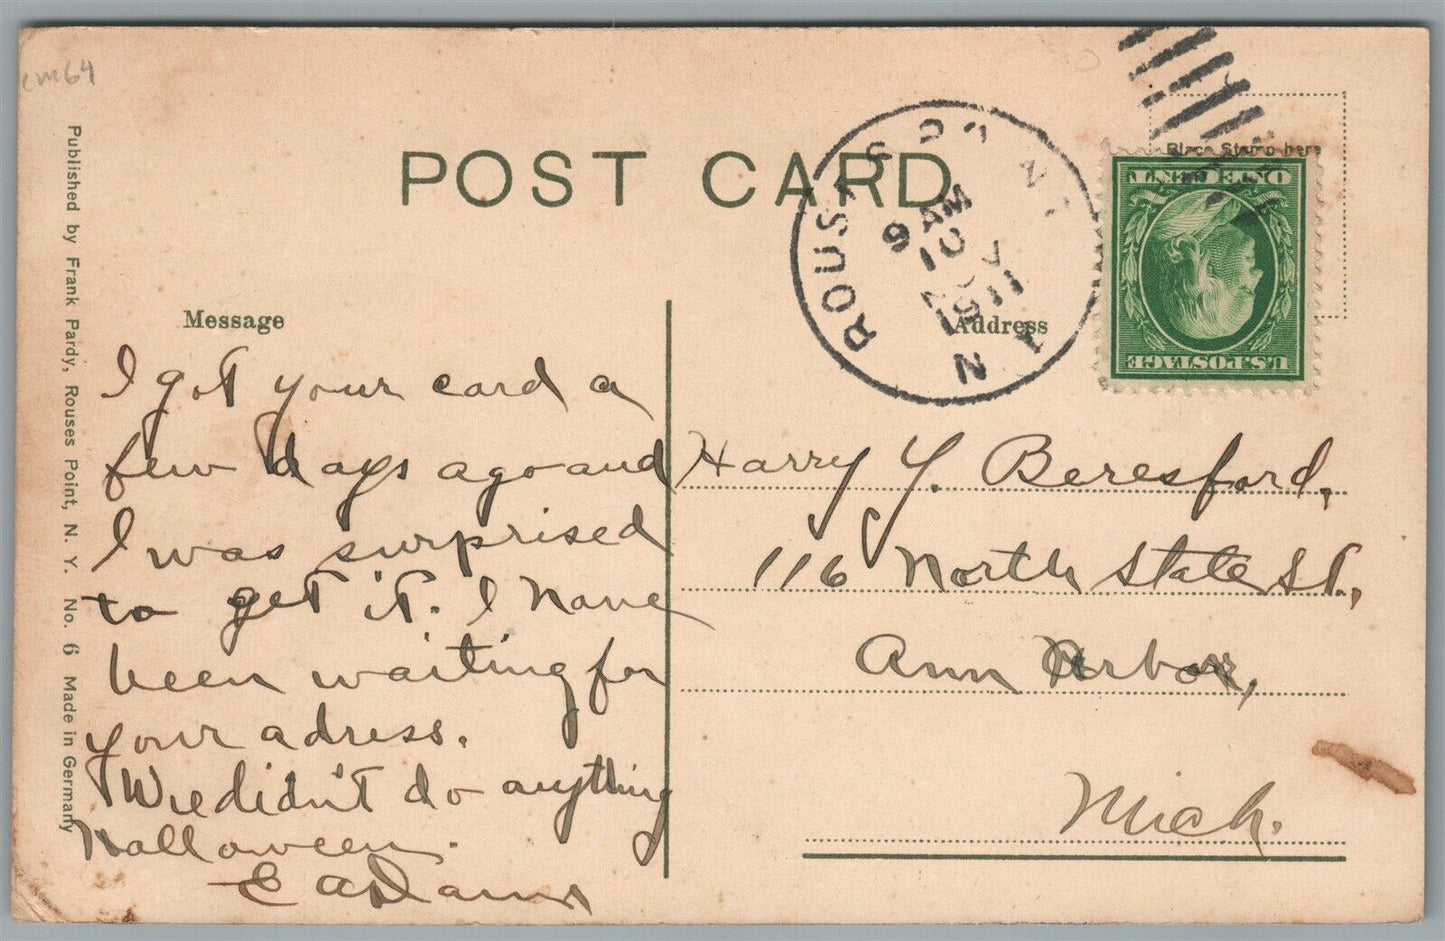 cm64
POST CARD
Place Stamp here
ONE CENT
U.S. POSTAGE
ROUSES PO NT
9 AM
10
1911
N
Message
Address
I got your card a
few days ago and
I was surprised
to get it. I have
been waiting for
your adress.
We didn't do anything
Halloween.
E Adams
Harry Y. Beresford,
116 North State St.,
Ann Arbor,
Mich.
Published by Frank Pardy, Rouses Point, N. Y. No. 6 Made in Germany